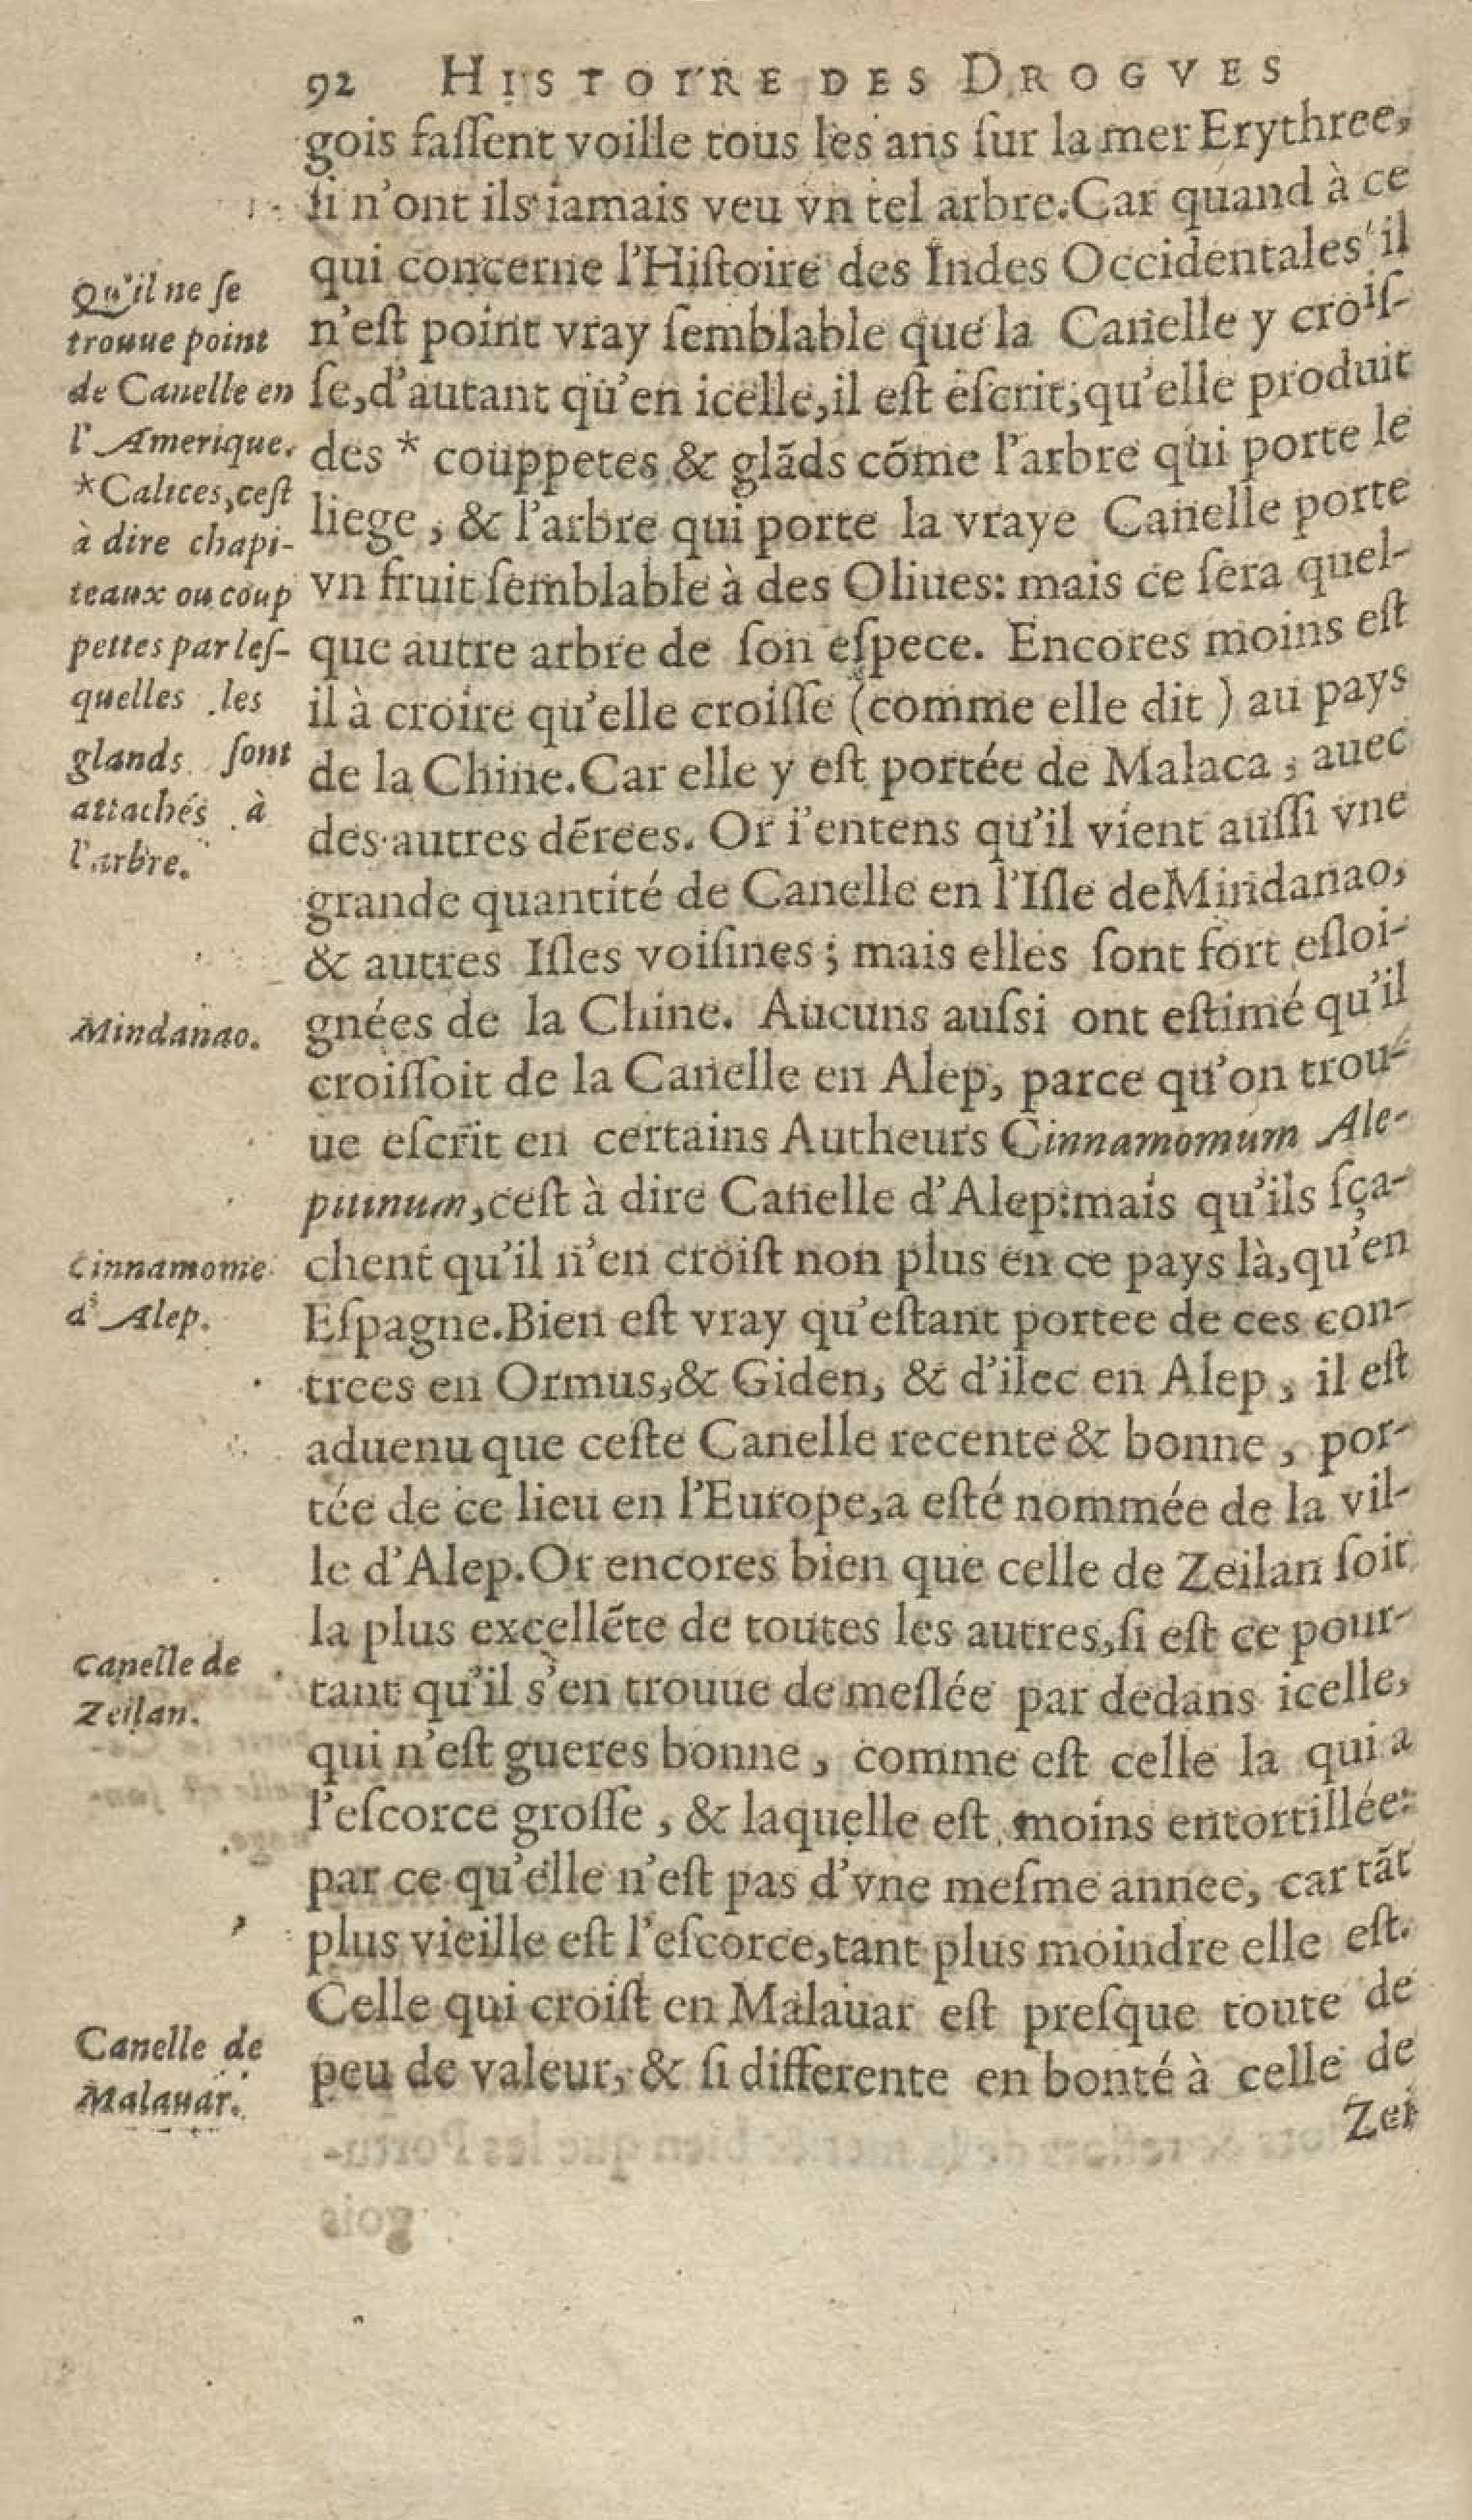 92 HISTOIRE DES DROGVES
gois faſſent voille tous les ans ſur la mer Erythree,
ſi n'ont ils iamais veu vn tel arbre. Car quand à ce
qui concerne l'Hiſtoire des Indes Occidentales il
n'eſt point vray ſemblable que la Canelle y croiſ-
ſe, d'autant qu'en icelle, il eſt eſcrit, qu'elle produit
des * couppetes & glãds cõme l'arbre qui porte le
liege, & l'arbre qui porte la vraye Canelle porte
vn fruit ſemblable à des Oliues: mais ce ſera quel-
que autre arbre de ſon eſpece. Encores moins eſt
il à croire qu'elle croiſſe (comme elle dit) au pays
de la Chine. Car elle y eſt portée de Malaca, auec
des autres dẽrees. Or i'entens qu'il vient auſſi vne
grande quantité de Canelle en l'Iſle de Mindanao,
& autres Iſles voiſines; mais elles ſont fort eſloi-
gnées de la Chine. Aucuns auſsi ont eſtimé qu'il
croiſſoit de la Canelle en Alep, parce qu'on trou-
ue eſcrit en certains Autheurs Cinnamomum Ale-
pitinum, ceſt à dire Canelle d'Alep: mais qu'ils ſça-
chent qu'il n'en croiſt non plus en ce pays là, qu'en
Eſpagne. Bien eſt vray qu'eſtant portee de ces con-
trees en Ormus, & Giden, & d'ilec en Alep, il eſt
aduenu que ceſte Canelle recente & bonne, por-
tée de ce lieu en l'Europe, a eſté nommée de la vil-
le d'Alep. Or encores bien que celle de Zeilan ſoit
la plus excellẽte de toutes les autres, ſi eſt ce pour-
tant qu'il s'en trouue de meſlée par dedans icelle,
qui n'eſt gueres bonne, comme eſt celle la qui a
l'eſcorce groſſe, & laquelle eſt moins entortillée:
par ce qu'elle n'eſt pas d'vne meſme annee, car tãt
plus vieille eſt l'eſcorce, tant plus moindre elle eſt.
Celle qui croiſt en Malauar eſt preſque toute de
peu de valeur, & ſi differente en bonté à celle de
Zei
Qu'il ne ſe
trouue point
de Canelle en
l'Amerique.
*Calices, ceſt
à dire chapi-
teaux ou coup
pettes par leſ-
quelles les
glands ſont
attachés à
l'arbre.
Mindanao.
Cinnamome
d'Alep.
Canelle de
Zeilan.
Canelle de
Malauar.